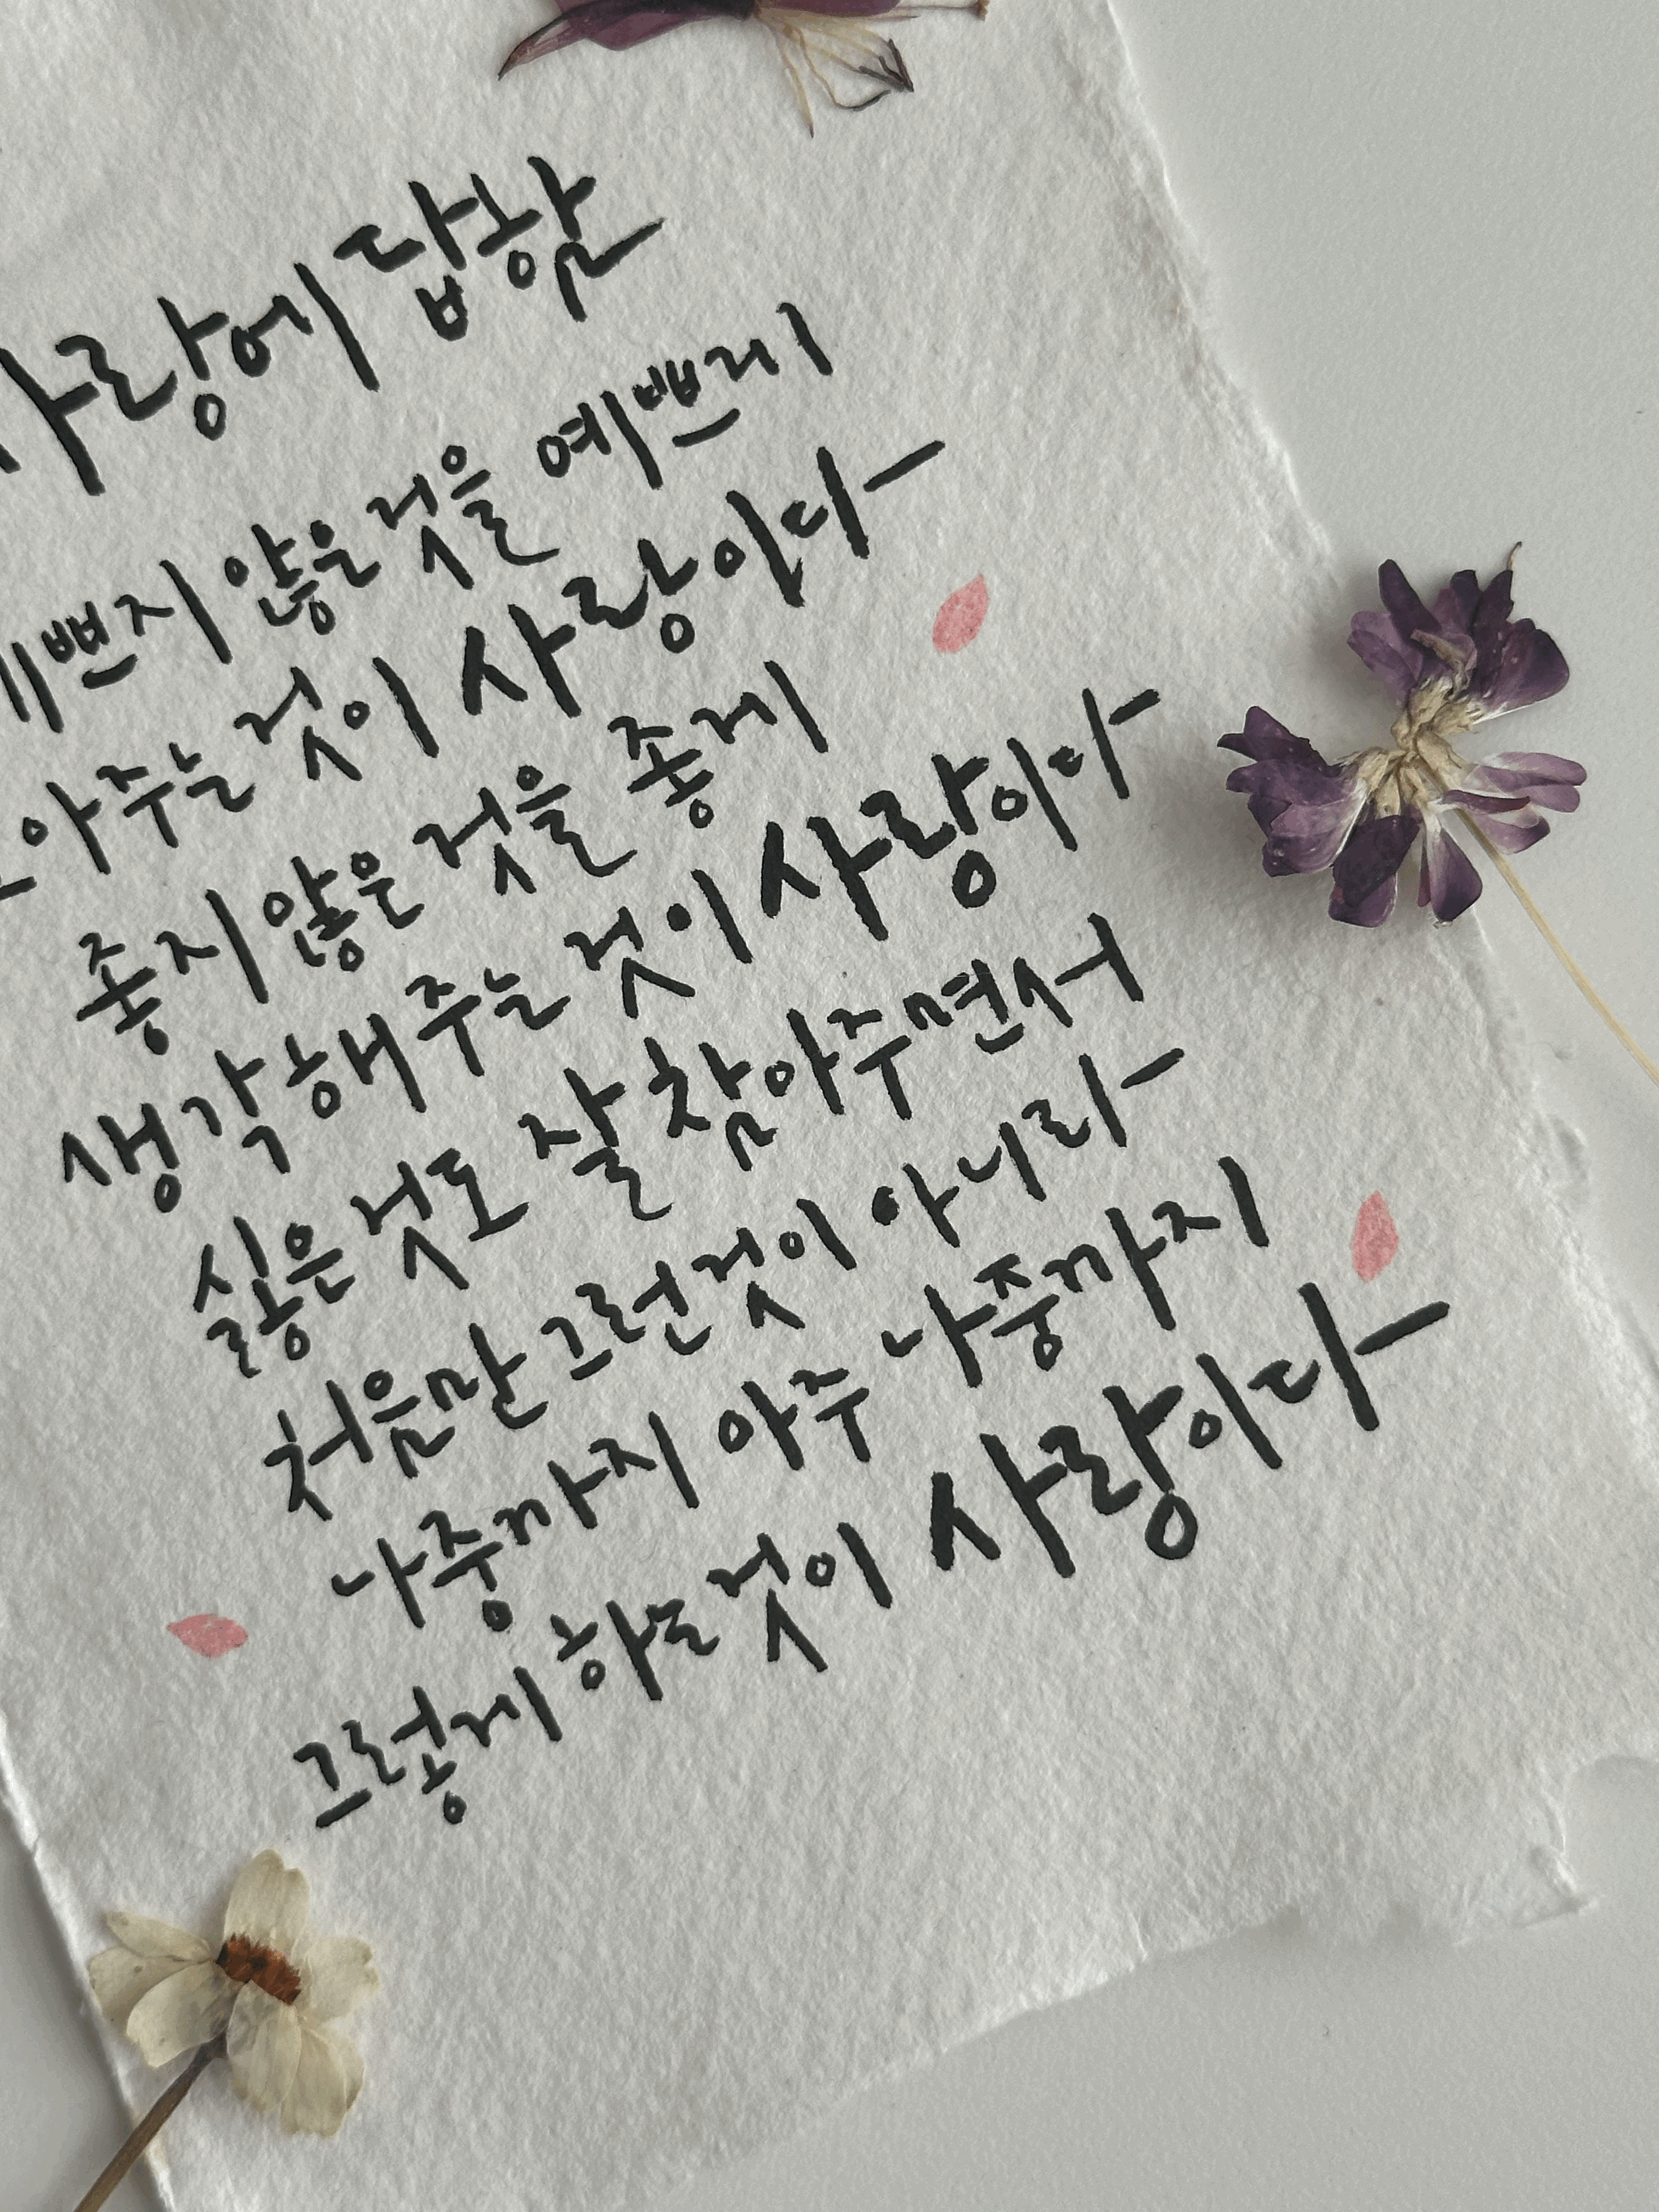 사랑에 답함
예쁘지 않은 것을 예쁘게
보아주는 것이 사랑이다
좋지 않은 것을 좋게
생각해 주는 것이 사랑이다
싫은 것도 잘 참아주면서
처음만 그런 것이 아니라
나중까지 아주 나중까지
그렇게 하는 것이 사랑이다